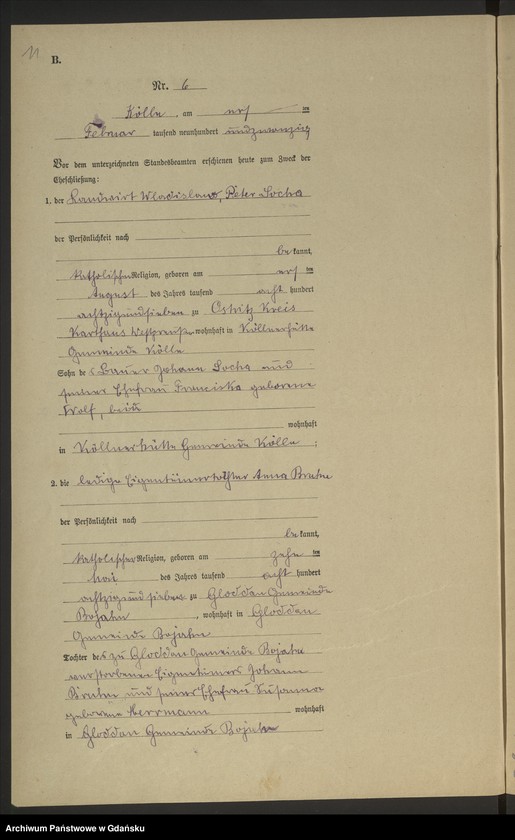 11
B.
Nr. 6
Kölln, am ersten
Februar tausend neunhundert undzwanzig
Vor dem unterzeichneten Standesbeamten erschienen heute zum Zweck der
Eheschließung:
1. der Landwirt Wladislaus, Peter Socha
der Persönlichkeit nach
bekannt,
katholischer Religion, geboren am ersten
August des Jahres tausend acht hundert
achtzigundsieben zu Ostritz Kreis
Karthaus Westpreußen, wohnhaft in Köllnerhütte
Gemeinde Kölln
Sohn des Bauer Johann Socha und
seiner Ehefrau Franciska geborene
Wolf, beide
wohnhaft
in Köllnerhütte Gemeinde Kölln ;
2. die ledige Eigentümertochter Anna
der Persönlichkeit nach
bekannt,
katholischer Religion, geboren am zehnten
Mai des Jahres tausend acht hundert
achtzigundsieben zu Gloddau Gemeinde
Bojahn, wohnhaft in Gloddau
Gemeinde Bojahn
Tochter des zu Gloddau Gemeinde Bojahn
verstorbenen Eigentümers Johann
und seiner Ehefrau Susanna
geborene Herrmann wohnhaft
in Gloddau Gemeinde Bojahn
Archiwum Państwowe w Gdańsku